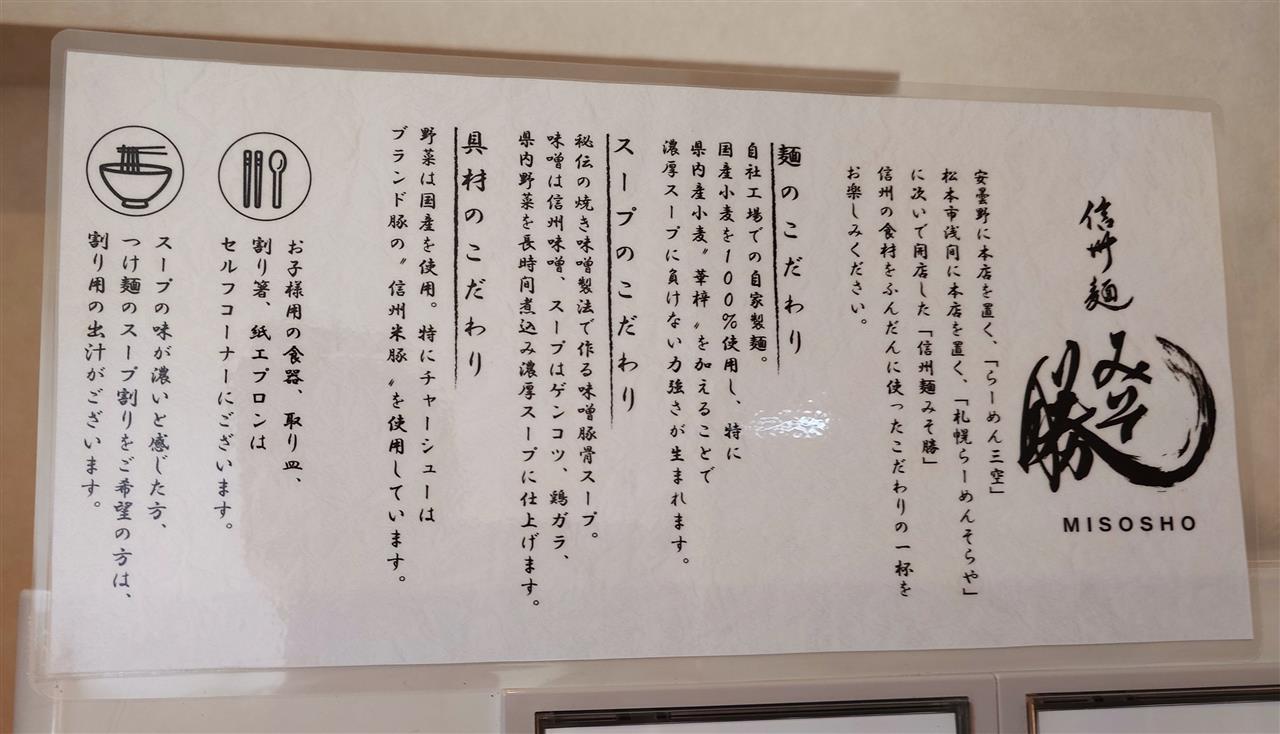 信州麺
みそ
勝
MISOSHO
安曇野に本店を置く、「らーめん三空」
松本市浅間に本店を置く、「札幌らーめんそらや」
に次いで開店した「信州麺みそ勝」
信州の食材をふんだんに使ったこだわりの一杯を
お楽しみください。
麺のこだわり
自社工場での自家製麺。
国産小麦を100%使用し、特に
県内産小麦〝華梓〟を加えることで
濃厚スープに負けない力強さが生まれます。
スープのこだわり
秘伝の焼き味噌製法で作る味噌豚骨スープ。
味噌は信州味噌、スープはゲンコツ、鶏ガラ、
県内野菜を長時間煮込み濃厚スープに仕上げます。
具材のこだわり
野菜は国産を使用。特にチャーシューは
ブランド豚の〝信州米豚〟を使用しています。
お子様用の食器、取り皿、
割り箸、紙エプロンは
セルフコーナーにございます。
スープの味が濃いと感じた方、
つけ麺のスープ割りをご希望の方は、
割り用の出汁がございます。